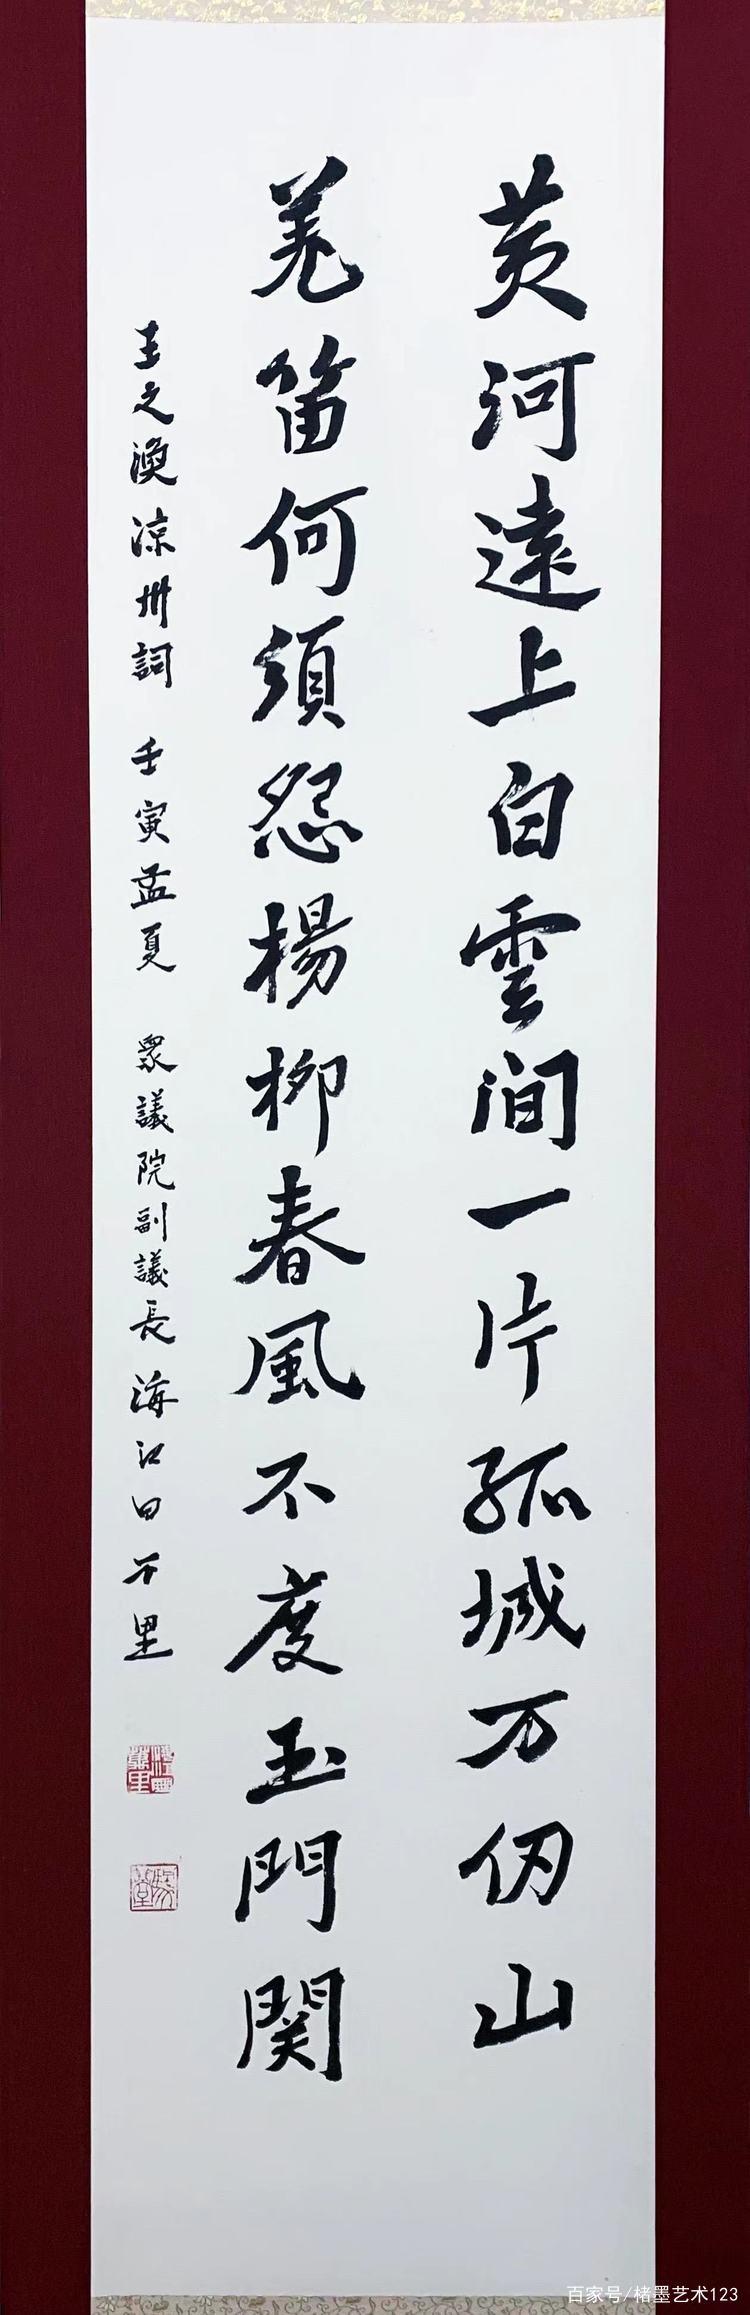 黄河遠上白雲间一片孤城万仞山
羌笛何須怨楊柳春風不度玉門関
王之渙涼州詞 壬寅孟夏 衆議院副議長海江田万里
百家号/楮墨艺术123